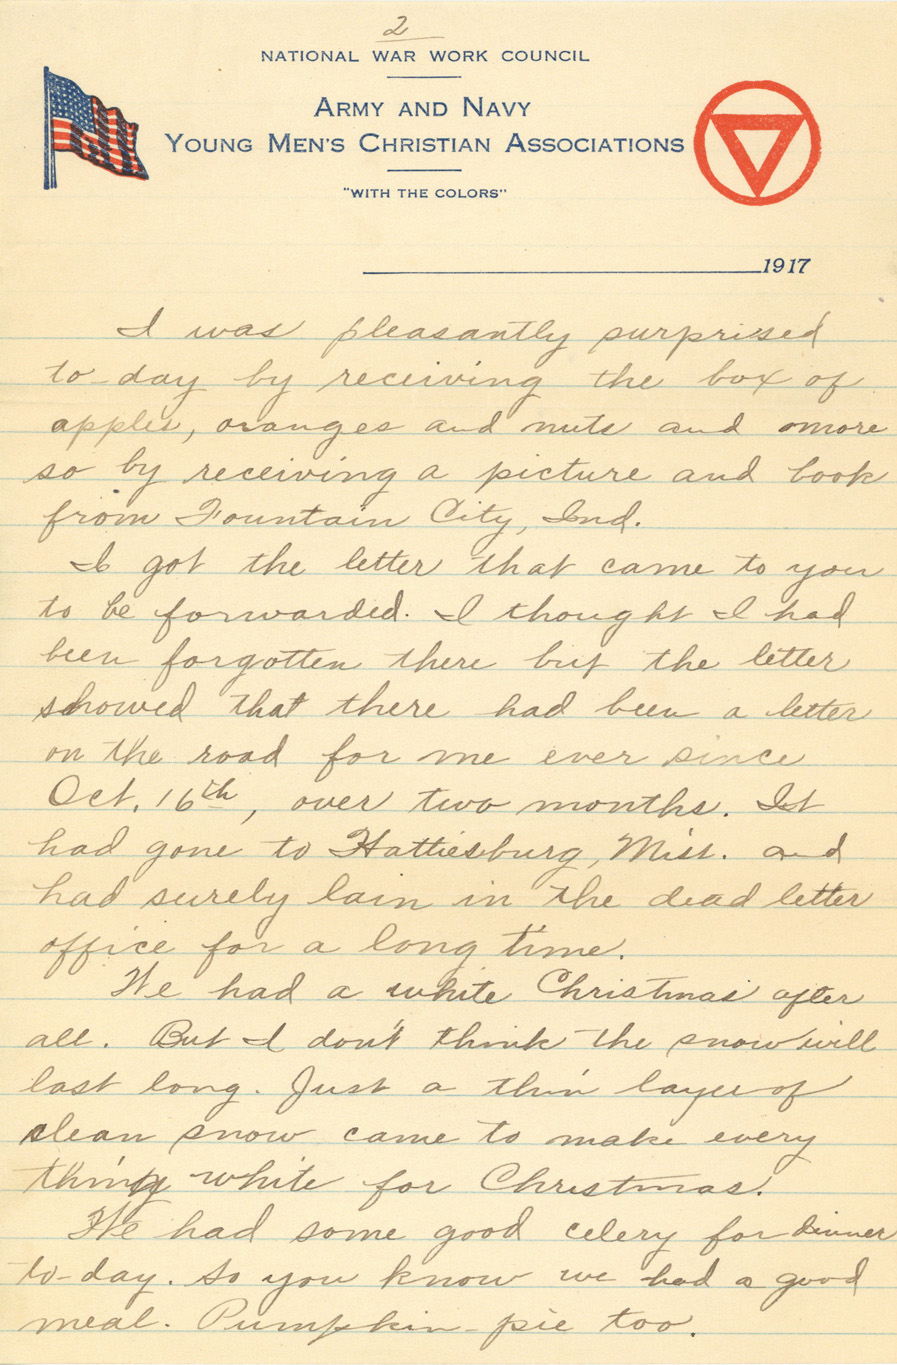 2
NATIONAL WAR WORK COUNCIL
ARMY AND NAVY
YOUNG MEN'S CHRISTIAN ASSOCIATIONS
"WITH THE COLORS"
1917
I was pleasantly surprised
to-day by receiving the box of
apples, oranges and nuts and more
so by receiving a picture and book
from Fountain City, Ind.
I got the letter that came to you
to be forwarded. I thought I had
been forgotten there but the letter
showed that there had been a letter
on the road for me ever since
Oct. 16th, over two months. It
had gone to Hattiesburg, Miss. and
had surely lain in the dead letter
office for a long time.
We had a white Christmas after
all. But I don't think the snow will
last long. Just a thin layer of
clean snow came to make every
thing white for Christmas.
We had some good celery for dinner
to-day. So you know we had a good
meal. Pumpkin-pie too.